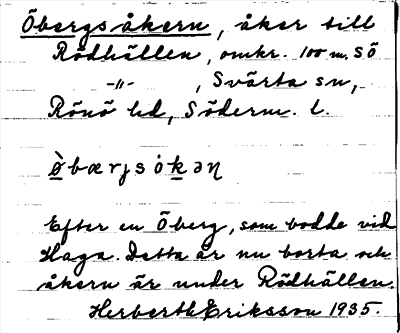 Öbergsåkern, åker till
Rödhällen, omkr. 100 m. SÖ
-"- , Svärta sn,
Rönö hd, Söderm. l.
ø̀bærjsòkəɳ
Efter en Öberg, som bodde vid
Haga. Detta är nu borta och
åkern är under Rödhällen.
Herberth Eriksson 1935.